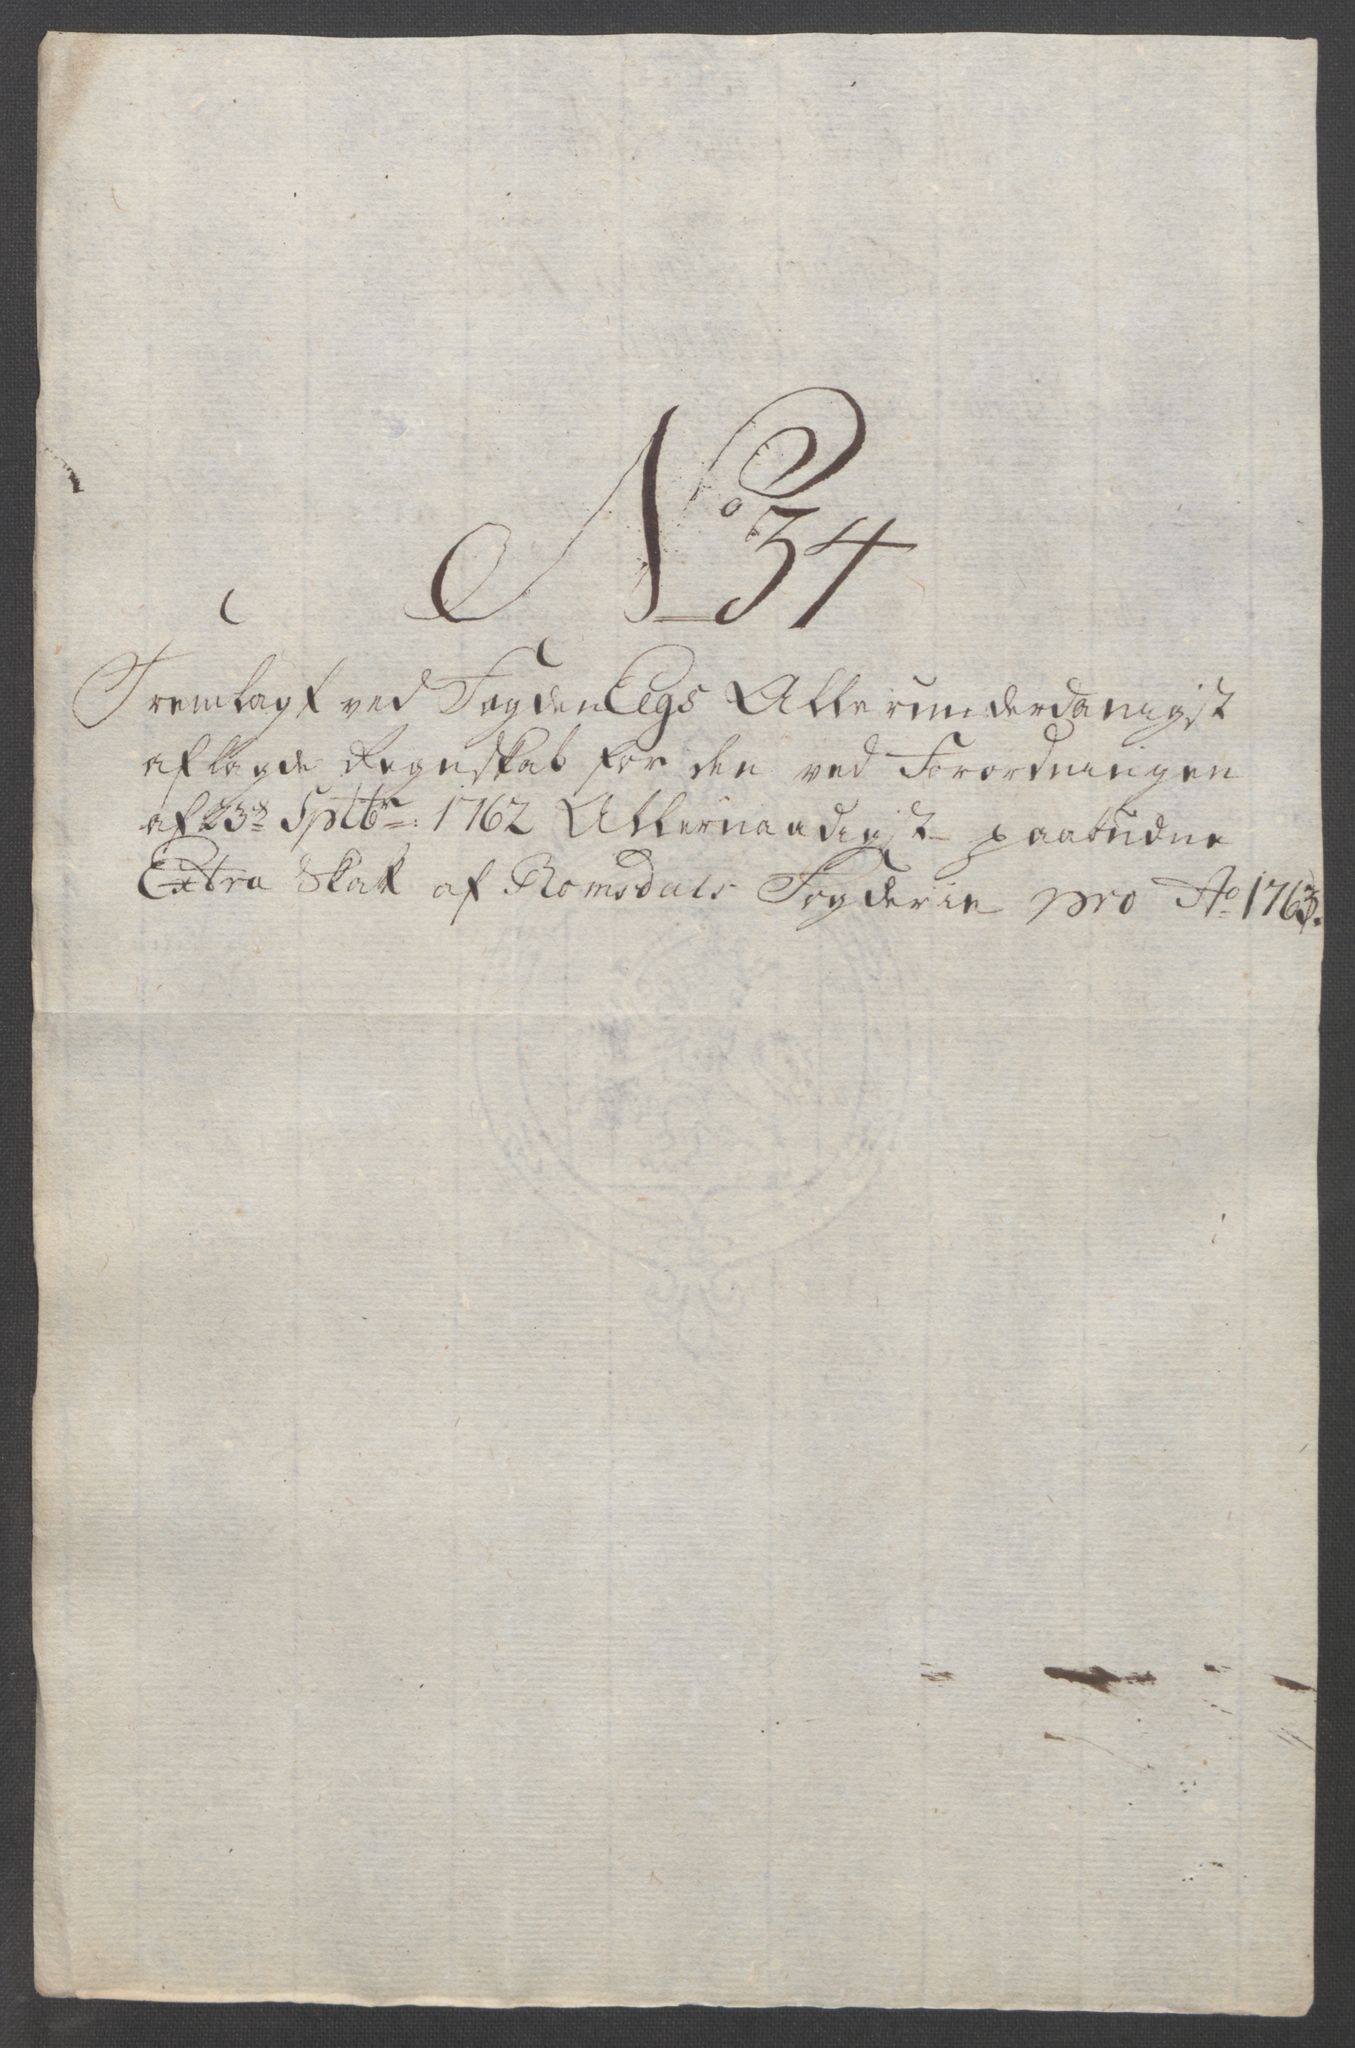 No 34
Fremlagt ved Fogden Eegs Allerunderdanigst
aflagde Regnskab for den ved Forordningen
af 23de Sptbr: 1762 Allernaadigst paabudne
Extra Skat af Romsdals Fogderie pro Ao 1763.